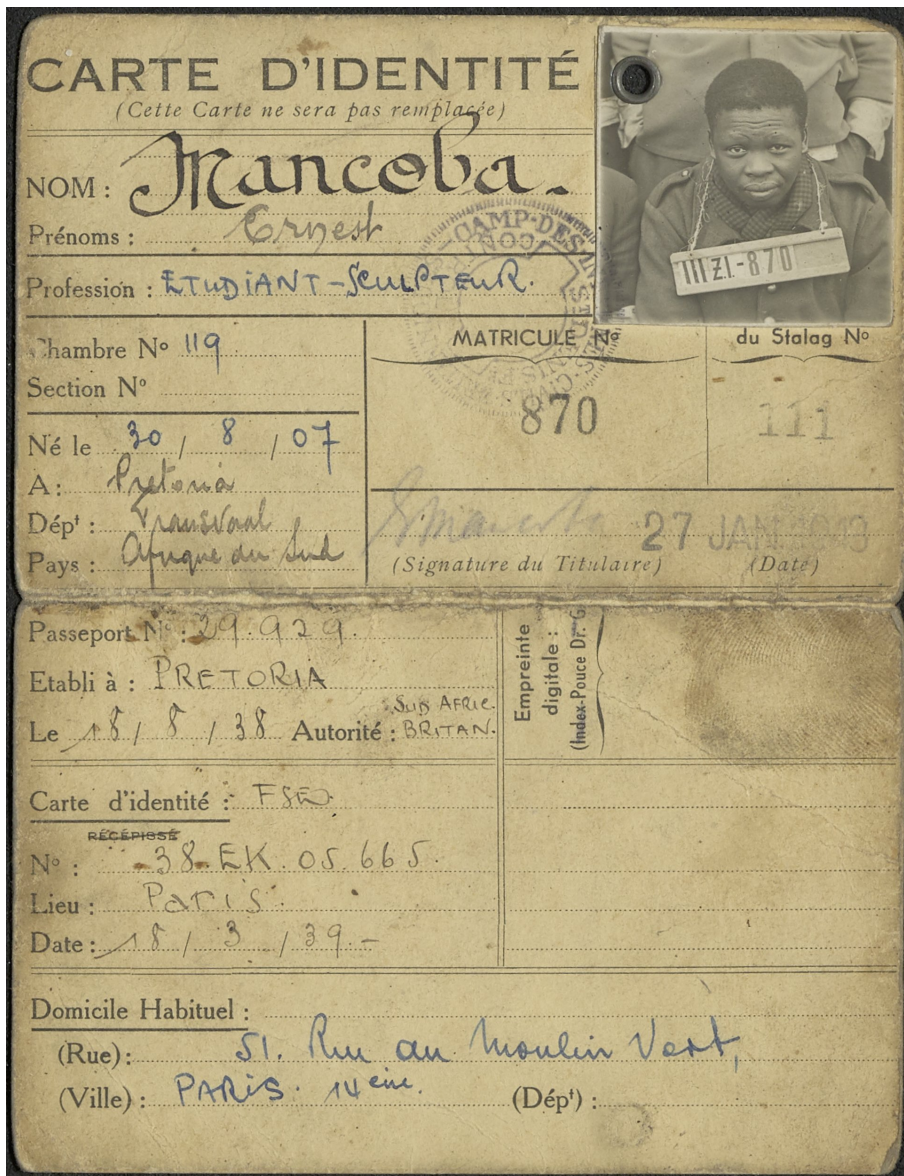 CARTE D'IDENTITÉ
(Cette Carte ne sera pas remplacée)
NOM : Mancoba.
Prénoms : Ernest
Profession : ETUDIANT-SCULPTEUR.
III Z.I.-870
Chambre No 119
Section No
MATRICULE No
870
du Stalag No
111
Né le 30 / 8 / 07
A : Pretoria
Dépt : Transvaal
Pays : Afrique du Sud
27 JAN. 1943
(Signature du Titulaire) (Date)
CAMP-DES-IN
Passeport No : 29.929.
Etabli à : PRETORIA
Le 18 / 8 / 38 Autorité : SUD AFRIC. BRITAN.
Empreinte
digitale :
(Index-Pouce Dr. G
Carte d'identité :
RÉCÉPISSÉ
No : 38.EK.05.665.
Lieu : Paris.
Date : 18 / 3 / 39-
Domicile Habituel :
(Rue) : 51. Rue du Moulin Vert,
(Ville) : PARIS. 14eme. (Dépt) :